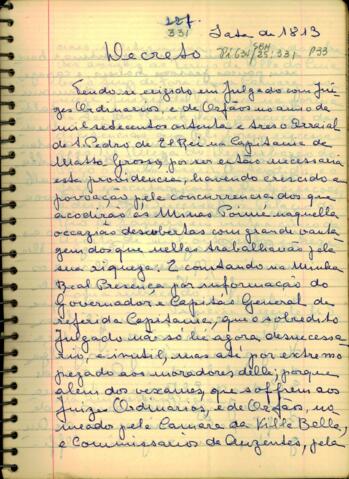 127.
331 Data de 1813
Decreto Pi 631/25.331 P33
SBH
Tendo se erigido em Julgado com Jui
zes Ordinarios, e de Orfãos no anno de
mil setecentos oitenta e tres o Arraial
de S. Pedro de El Rei na Capitania de
Matto Grosso, por ser então necessaria
esta providencia, havendo crescido a
povoação pela concurrencia dos que
acodirão ás Minas naquella
occazião descobertas com grande vanta
gem dos que nellas trabalhavão pela
sua riqueza: E constando na Minha
Real Prezença por informação do
Governador e Capitão General da
referida Capitania, que o sobredito
Julgado não só he agora desnecessa
rio, e inutil, mas até por extremo
pezado aos moradores delle; porque
além dos vexames, que soffrem aos
Juizes Ordinarios, e de Orfãos, no
meado pela Camara da Villa Bella,
e Commissarios de Auzentes, pela